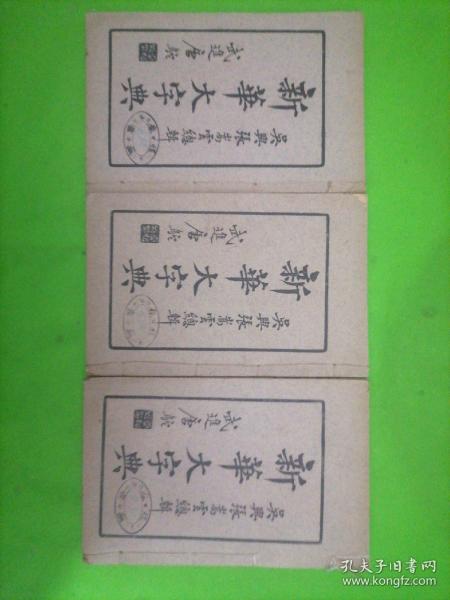 吳興張嵩雲總輯
新華大字典
武進唐駝
吳興張嵩雲總輯
新華大字典
武進唐駝
吳興張嵩雲總輯
新華大字典
武進唐駝
孔夫子旧书网
www.kongfz.com